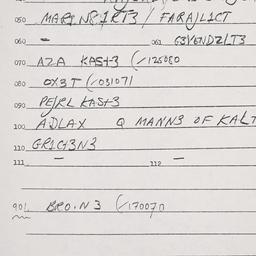 050 MARI.N81RT3 / FARAJL1CT
060 - 061 G3V6NDZLT3
070 AZA KAST3 (-125080
080 OX3T (-031071
090 PEJRL KAST3
100 ADLAX Q MANN3 OF KALT
110 GR1CH3N3
111 - 112 -
901 BRO.N3 (-170070